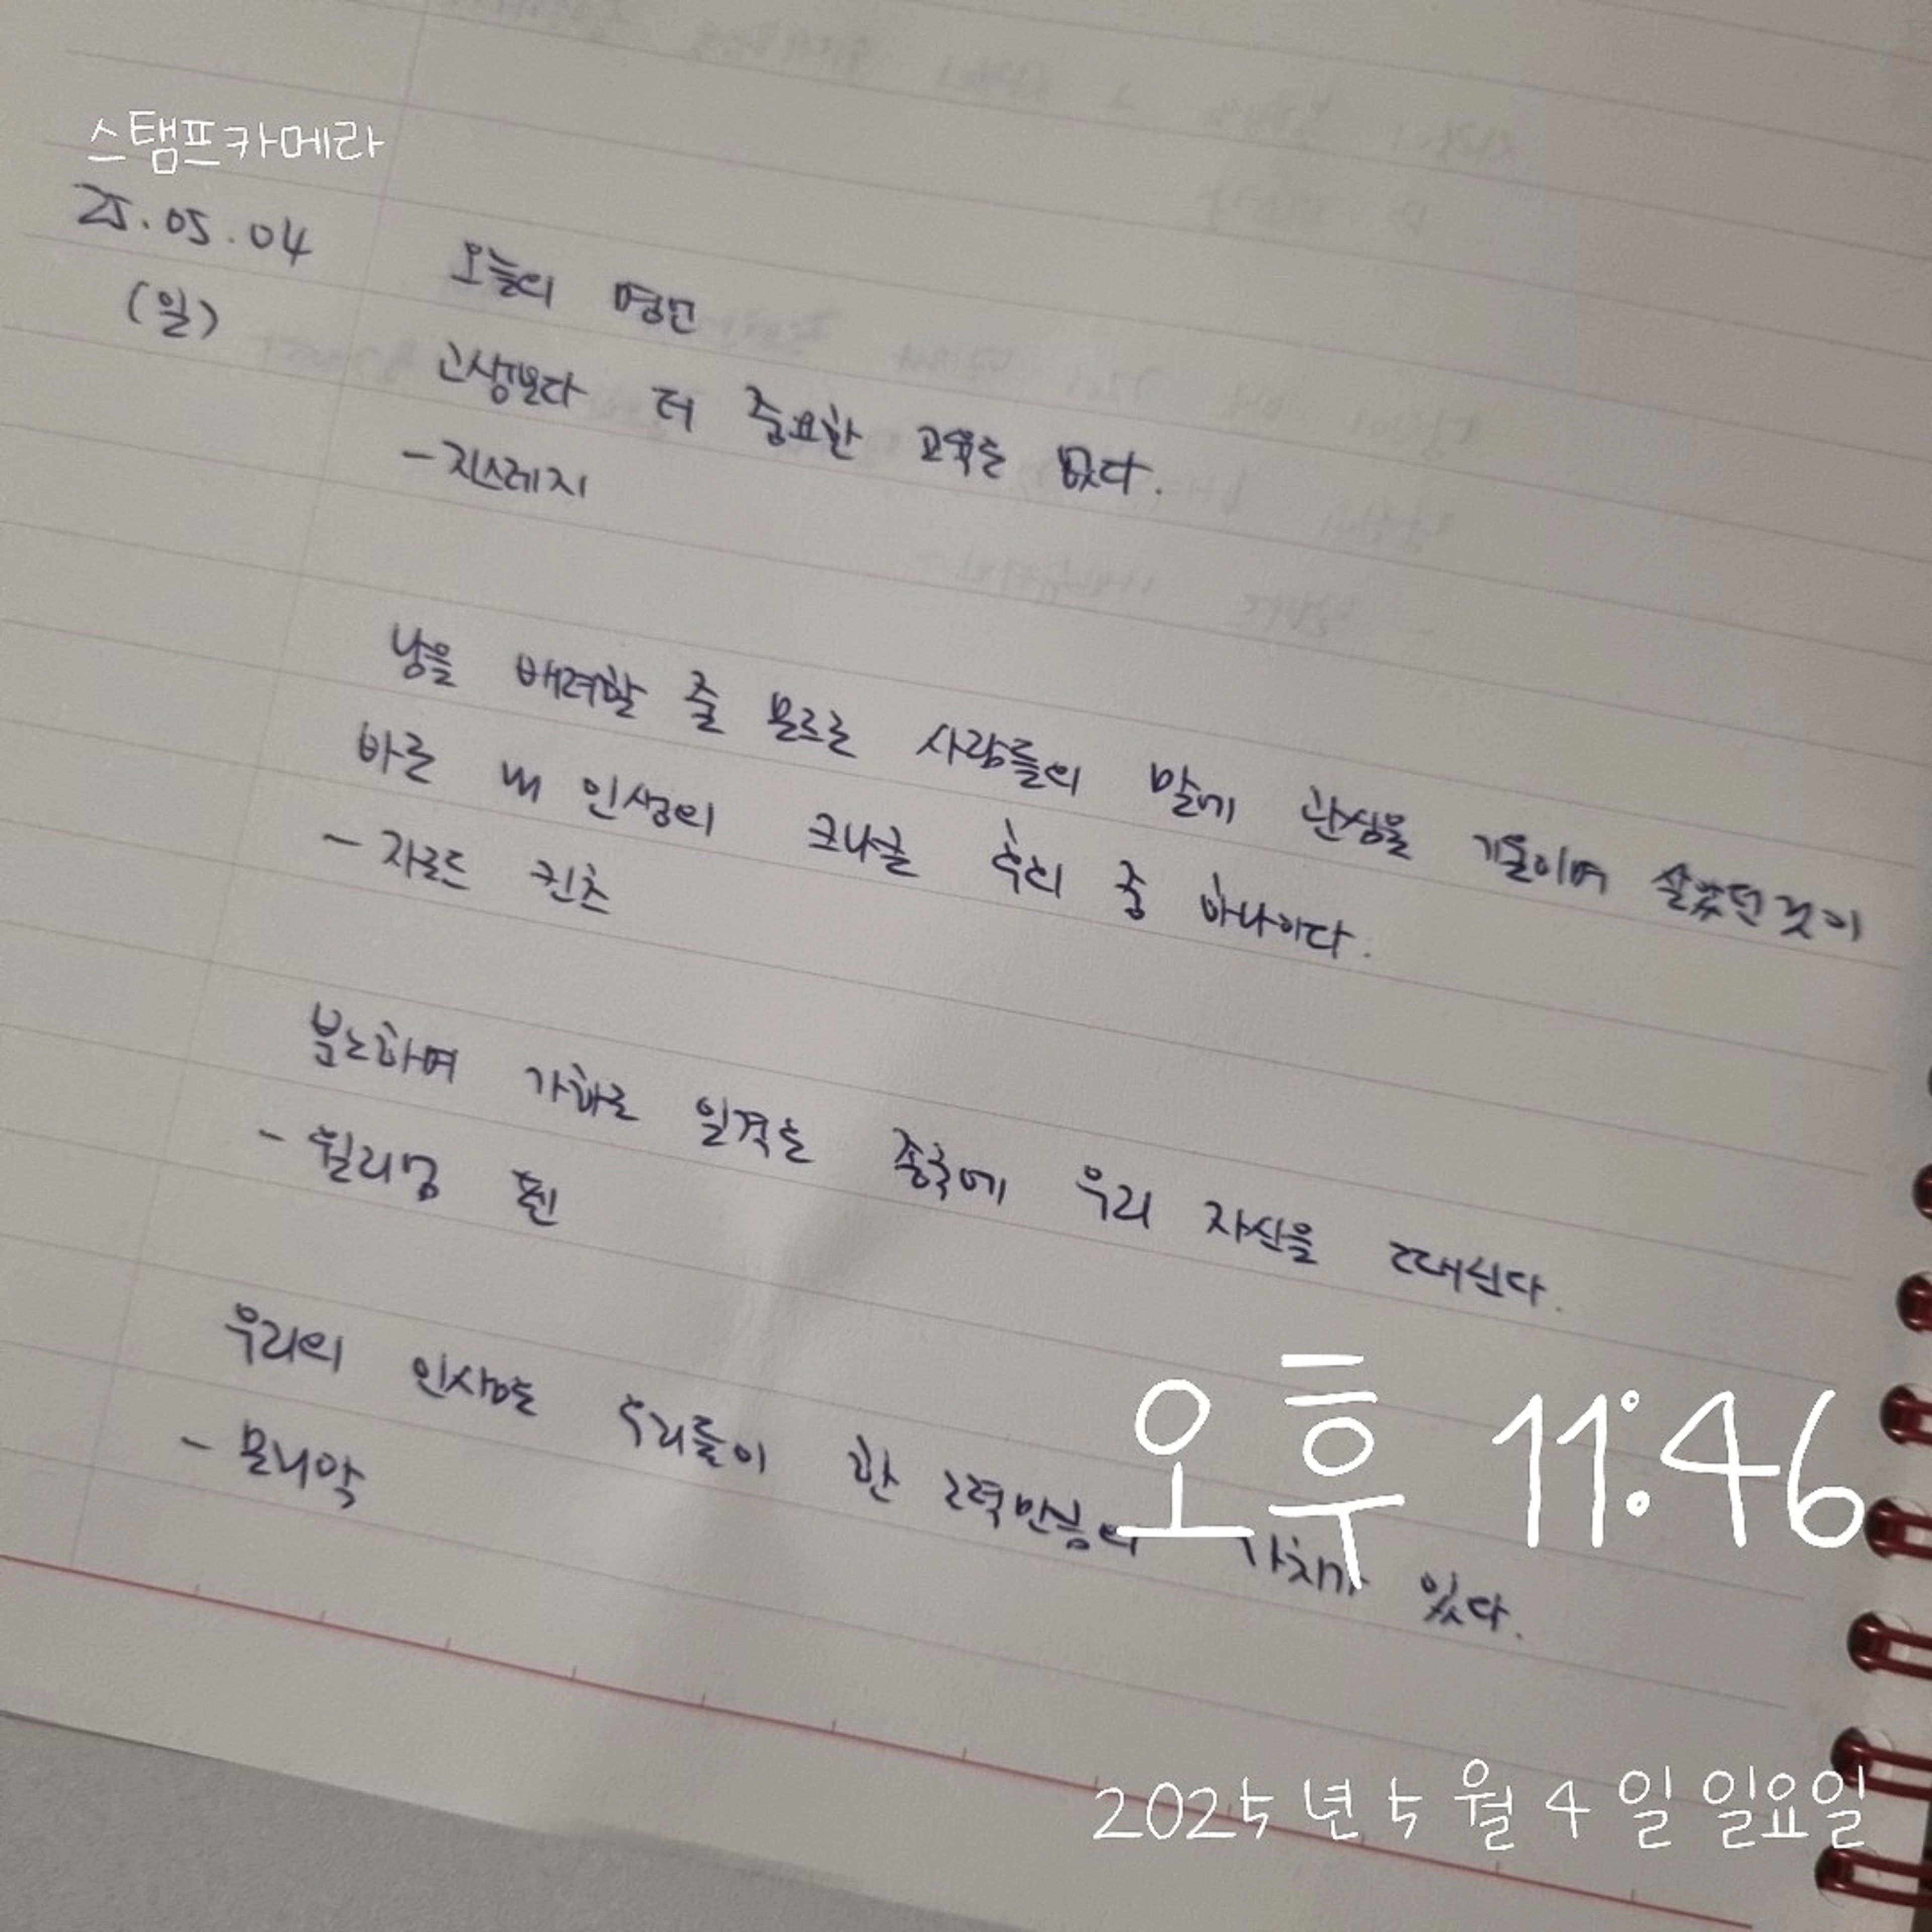 스탬프카메라
25.05.04 오늘의 명언
(일)
고생보다 더 중요한 교육은 없다.
- 지스레지
남을 배려할 줄 모르는 사람들의 말에 관심을 기울이며 살았던것이
바로 내 인생의 크나큰 후회 중 하나이다.
- 자로드 킨츠
분노하며 가하는 일격은 종국에 우리 자신을 때린다.
- 윌리엄 펜
우리의 인생은 우리들이 한 노력만큼의 가치가 있다.
- 모리악
오후 11:46
2025년 5월 4일 일요일